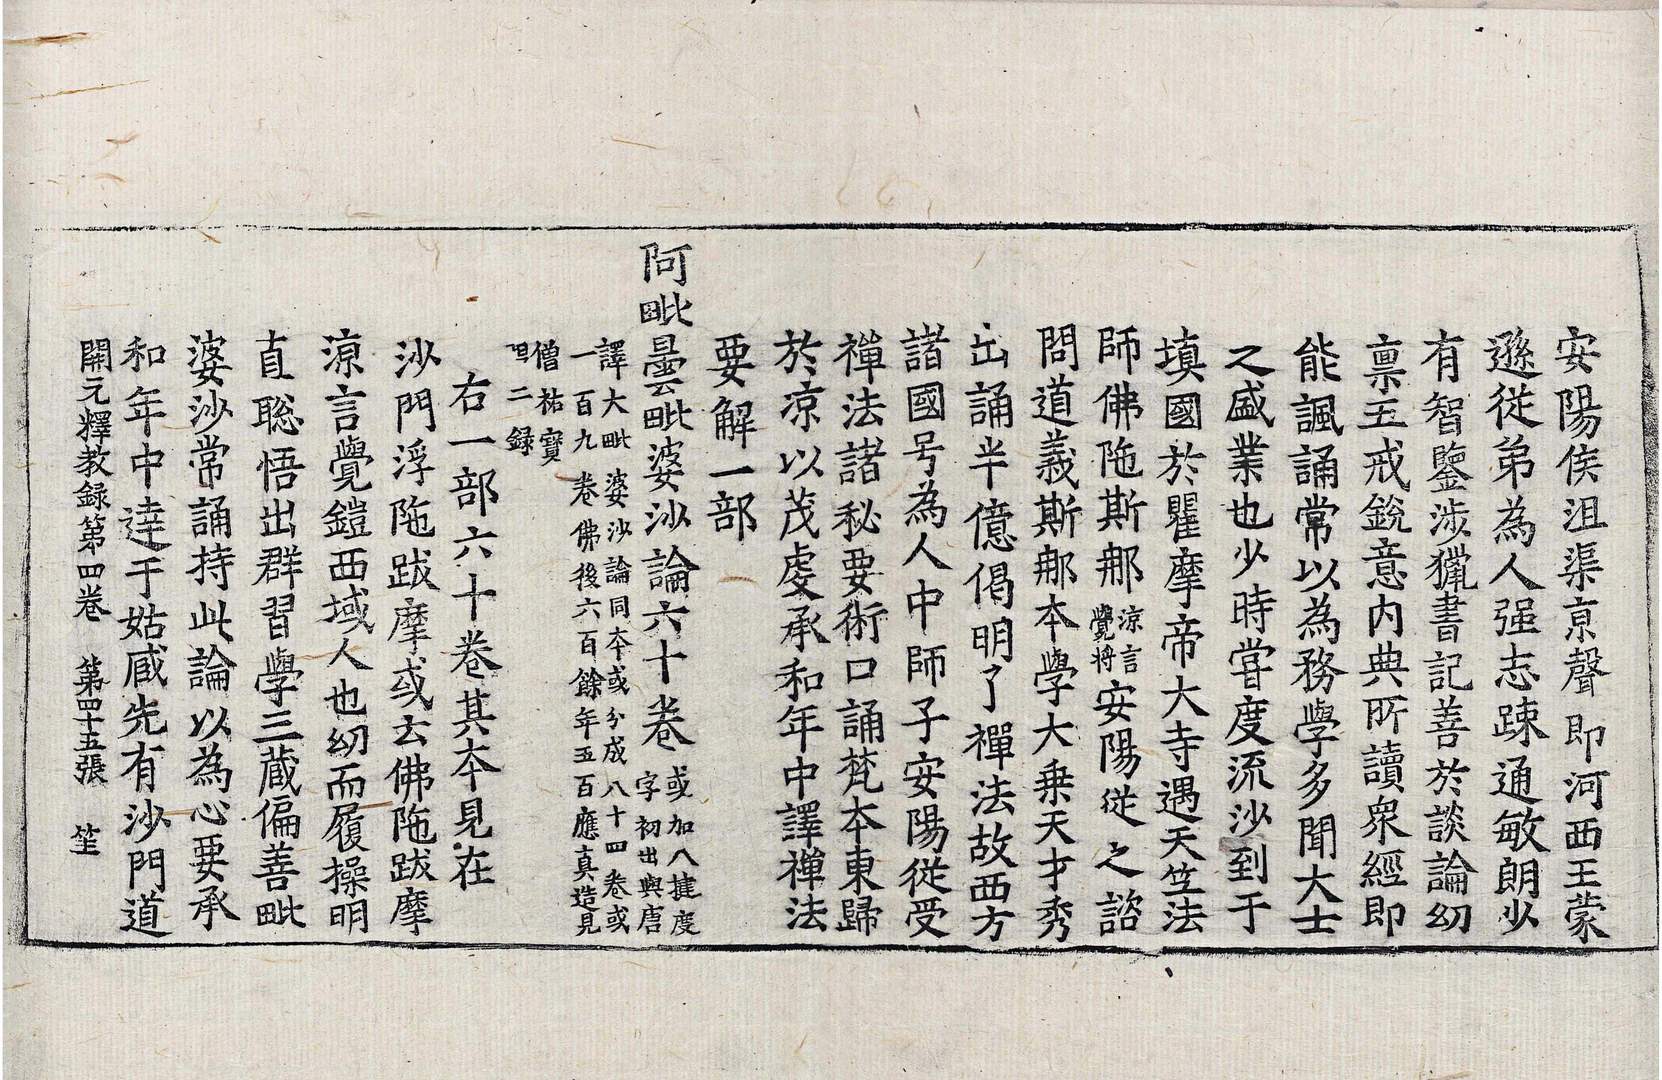 安陽侯沮渠京聲即河西王蒙
遜從弟為人强志踈通敏朗少
有智鑒涉獵書記善於談論幼
禀五戒銳意內典所讀衆經即
能諷誦常以為務學多聞大士
之盛業也少時嘗度流沙到于
填國於瞿摩帝大寺遇天竺法
師佛陁斯那凉言覺將安陽從之諮
問道義斯那本學大乗天才秀
出誦半億偈明了禪法故西方
諸國号為人中師子安陽從受
禪法諸秘要術口誦梵本東歸
於凉以茂虔承和年中譯禪法
要解一部
阿毗曇毗婆沙論六十卷或加八揵度字初出與唐
譯大毗婆沙論同本或分成八十四卷或
一百九卷佛後六百餘年五百應真造見
僧祐寶
唱二録
右一部六十卷其本見在
沙門浮陁跋摩或云佛陁跋摩
凉言覺鎧西域人也幼而履操明
直聦悟出群習學三蔵偏善毗
婆沙常誦持此論以為心要承
和年中達于姑臧先有沙門道
開元釋教録第四卷 第四十五張 笙